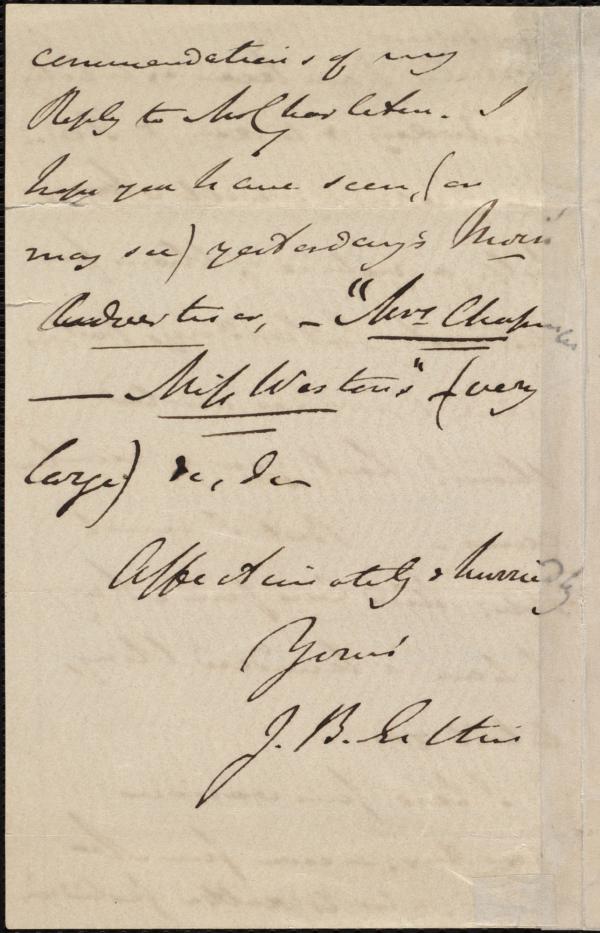 commendations of my
Reply to Mr Charleton. I
hope you have seen, (or
may see) yesterday's Morn
Advertiser, - "Mrs Chapman
— Miss Weston" (very
large) &c, &c
Affectionately & hurriedly
Yours
J. B. Estlin